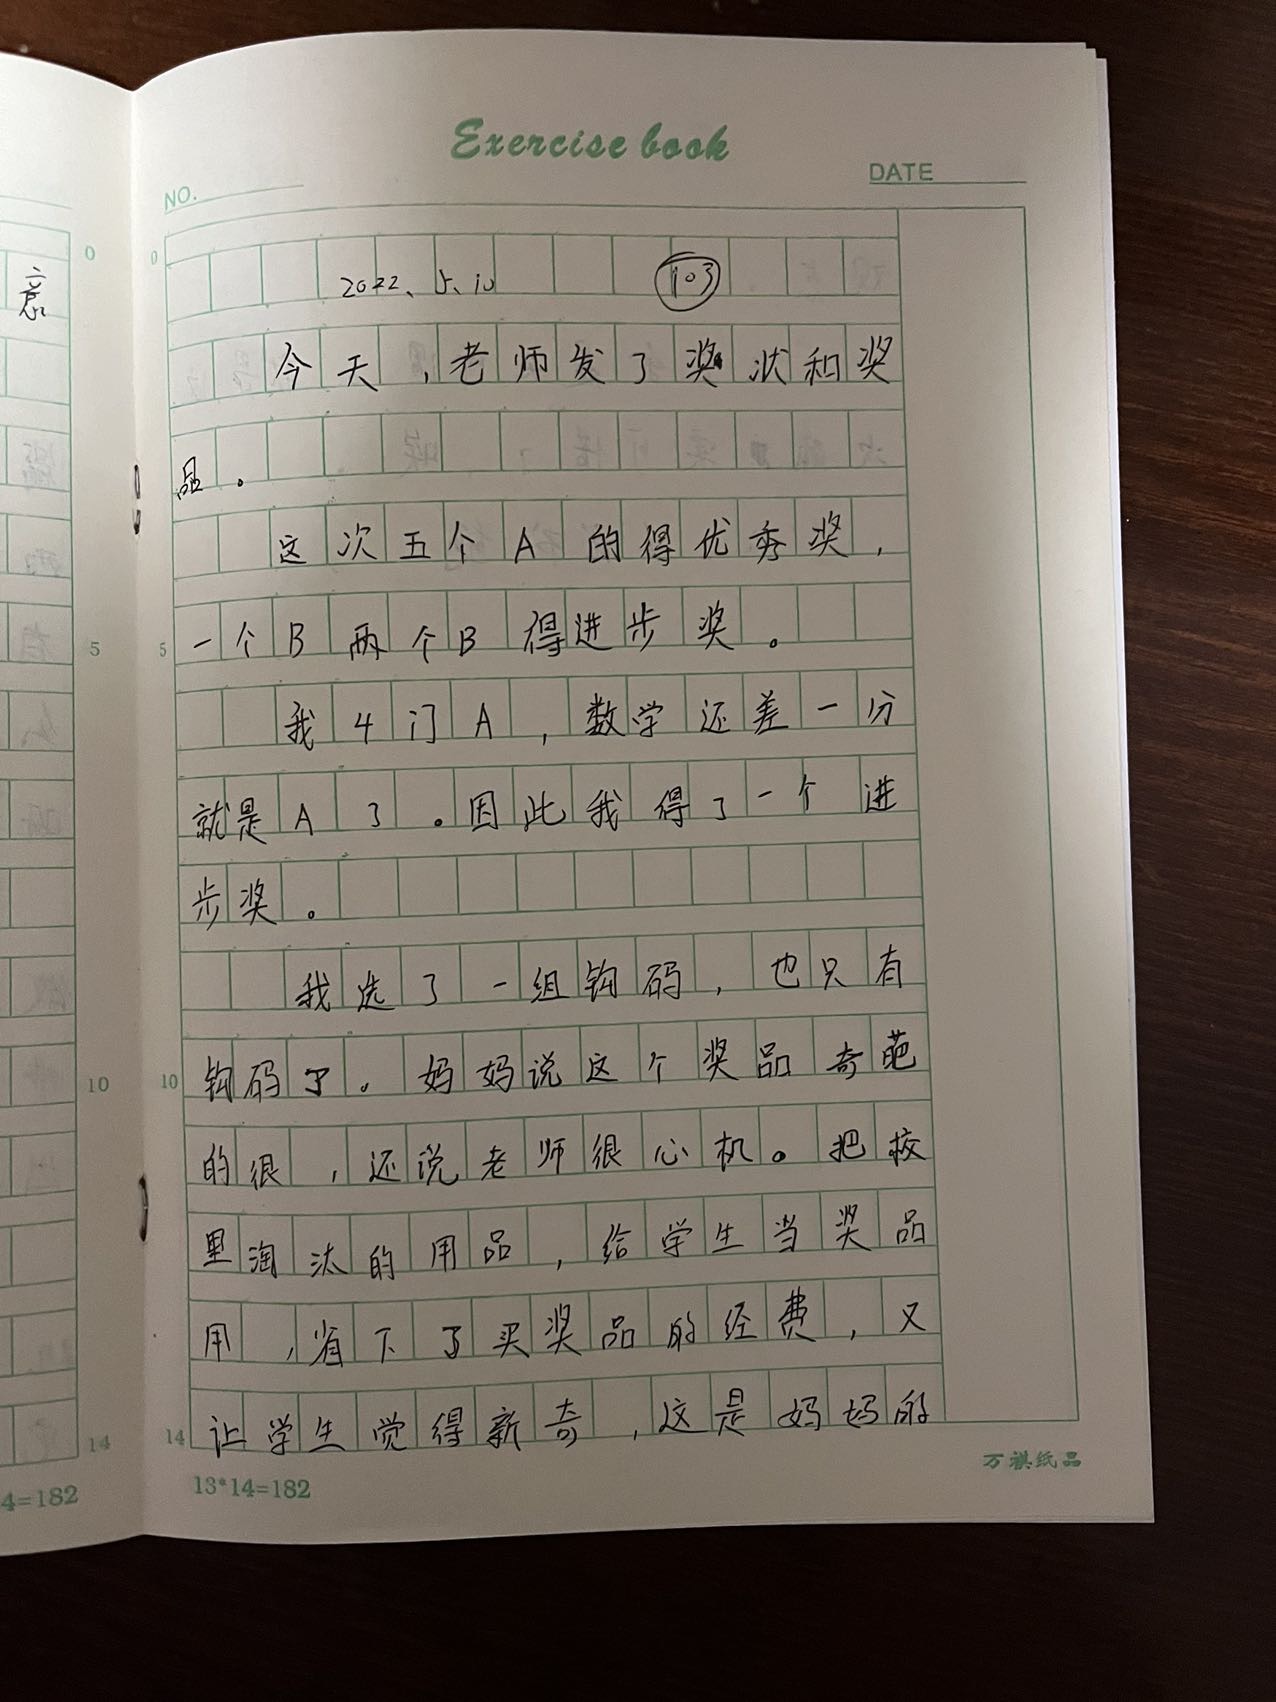 Exercise book
NO.
DATE
0
0
2022、5、10
103
意
今天，老师发了奖状和奖
品。
这次五个A的得优秀奖，
5
5
一个B两个B得进步奖。
我4门A，数学还差一分
就是A了。因此我得了一个进
步奖。
我选了一组钩码，也只有
10
10
钩码了。妈妈说这个奖品奇葩
的很，还说老师很心机。把校
里淘汰的用品，给学生当奖品
用，省下了买奖品的经费，又
14
14
让学生觉得新奇，这是妈妈的
4=182
13*14=182
万祺纸品